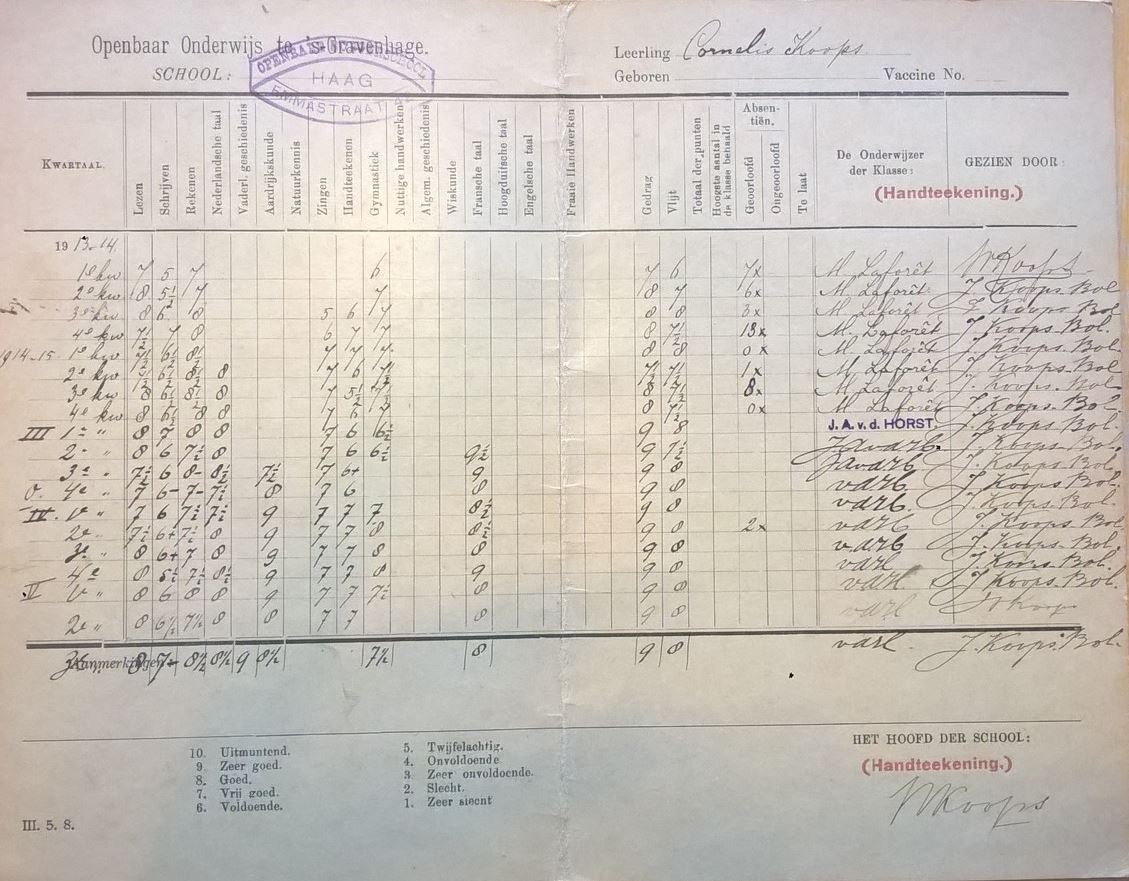 Openbaar Onderwijs te 's-Gravenhage.
SCHOOL:
HAAG
EMMASTRAAT
Leerling Cornelis Koops
Geboren Vaccine No.
KWARTAAL.
Lezen
Schrijven
Rekenen
Nederlandsche taal
Vaderl. geschiedenis
Aardrijkskunde
Natuurkennis
Zingen
Handteekenen
Gymnastiek
Nuttige handwerken
Algem. geschiedenis
Wiskunde
Fransche taal
Hoogduitsche taal
Engelsche taal
Fraaie Handwerken
Gedrag
Vlijt
Totaal der punten
Hoogste aantal in de klasse behaald
Absen-
tiën.
Geoorloofd
Ongeoorloofd
Te laat
De Onderwijzer
der Klasse:
GEZIEN DOOR:
(Handteekening.)
1913-14
1e kw 7 5 7 6 7 6 7x M. Laforêt WKoops
2e kw 8 5½ 7 7 8 7 6x M. Laforêt J. Koops-Bol
3e kw 8 6 8 5 6 8 8 M. Laforêt J. Koops Bol
4e kw 7½ 7 8 6 7 7 8 7½ 13x M. Laforêt J. Koops-Bol.
1914-15 1e kw 7½ 6½ 8½ 7 7 7 8 8 0x M. Laforêt J. Koops-Bol.
2e kw 6½ 8½ 8 7 6 7½ 7½ 7½ 1x M. Laforêt J. Koops-Bol
3e kw 8 6½ 8½ 8 7 5½ 7½ 8 7½ 8x M. Laforêt J. Koops-Bol
4e kw 8 6½ 8 8 7 6 7 8 7½ 0x M. Laforêt J. Koops-Bol.
III 1e " 8 7 8 8 7 6 6½ 9 8 J. A. v. d. HORST. J. Koops-Bol
2e " 8 6 7½ 8 7 6 6½ 9½ 9 7½ Javarb. J. Koops-Bol
3e " 7½ 6 8- 8½ 7½ 7 6+ 9 9 8 Javarb J. Koops-Bol.
4e " 7 6- 7- 7½ 8 7 6 8 9 8 varb. J. Koops-Bol.
IV. 7 6 7½ 7½ 9 7 7 7 8½ 9 8 varb J. Koops-Bol.
2e " 7½ 6+ 7½ 8 9 7 7 8 8½ 9 8 2x varb J. Koops-Bol.
3e " 8 6+ 7 8 9 7 7 8 8 9 8 varb J. Koops-Bol.
4e 8 5½ 7½ 8½ 9 7 7 8 9 9 8 varl J. Koops-Bol.
V 8 6 8 8 9 7 7 7½ 8 9 8 varl J. Koops-Bol.
2e " 8 6½ 7½ 8 8 7 7 8 9 8 varl
Aanmerkingen
3e 8 7- 8½ 8½ 9 8½ 7½ 8 9 8 varl. J. Koops-Bol.
10. Uitmuntend.
9. Zeer goed.
8. Goed.
7. Vrij goed.
6. Voldoende.
5. Twijfelachtig.
4. Onvoldoende
3. Zeer onvoldoende.
2. Slecht.
1. Zeer slecht
HET HOOFD DER SCHOOL:
(Handteekening.)
WKoops
III. 5. 8.